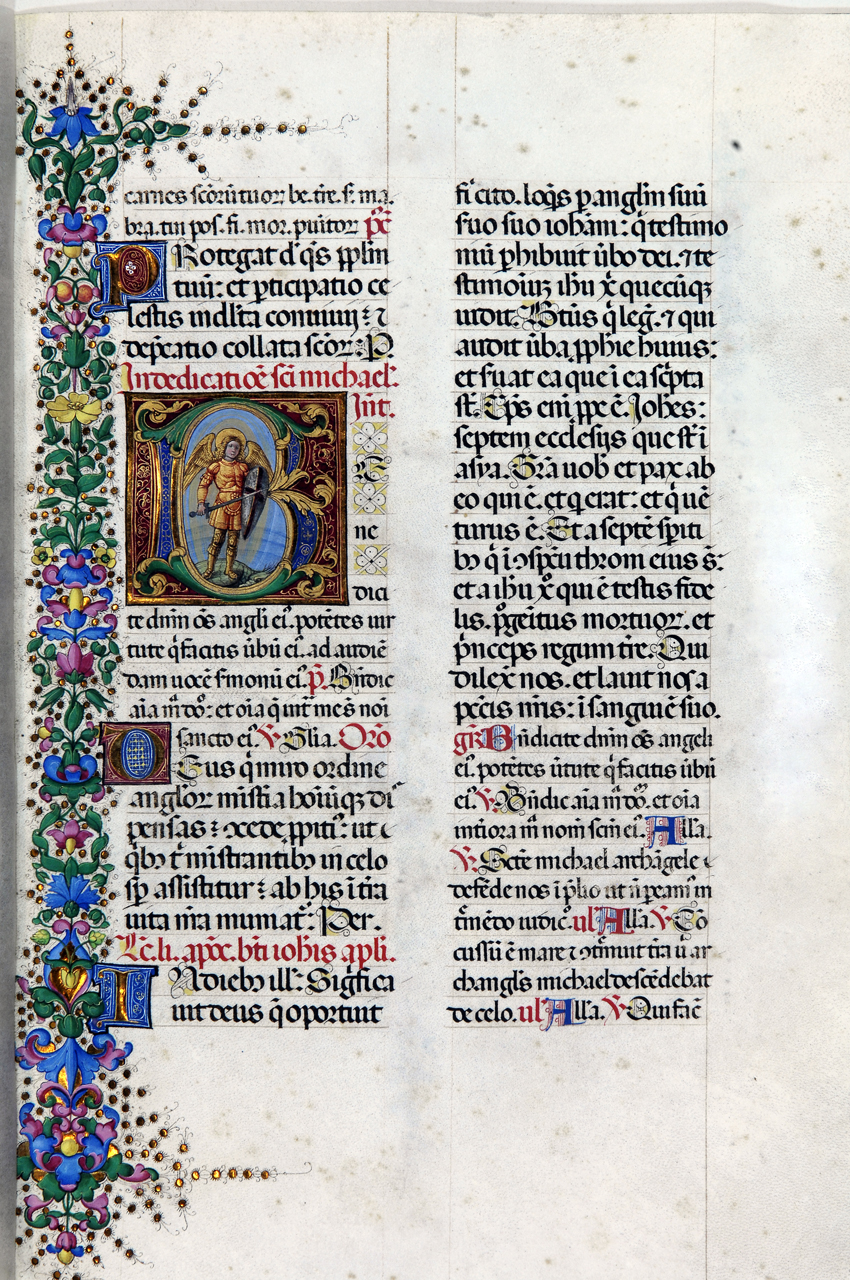 carnes scōrū tuoꝝ be. tr̄e. s̄. ma.
bra. tin pos. fi. mor. puītor pc̄
PRotegat d' q̄s ṗplm
tuū: et ꝑticipatio ce
lestis indl̄ta conuiuii: ⁊
dep̄catio collata scōꝝ: P.
In dedicatiōē sc̄i michael.
Int.
BE
ne
dici
te dnm̄ oēs angli ei'. potētes uir
tute q̄ facitis ūbū ei'. ad audiē
dam uocē sm̄onū ei'. p̄. Bn̄dic
aīa m̄ dō: et oīa q̄ int̄ me s̄ noī
sancto ei'. ℣ Glia. Orō
DEus q̄ miro ordine
angloꝝ mīstīa hoīuqꝫ di
pensas: ꝯcede ṗpiti': ut a
qbꝫ t' mīstrantibꝫ in celo
sp̄ assistitur: ab his ī tr̄a
uita nr̄a muniat': Per.
Lc̄. li. apoc̄. bt̄i iohis apli.
IN diebꝫ ill': Sigfica
uit deus q̄ oportuit
fi cito. loqs̄ ꝑ angl̄m suū
suo suo iohāni: q̄ testimo
niū ꝑhibuit ūbo dei. ⁊ te
stimoiuꝫ ihū x̄ quecūqꝫ
uidit. Btūs q̄ leḡ. ⁊ qui
audit ūba ṗphīe huius:
et s̄uat ea que ī ea sc̄pta
st̄. Tp̄s enī ṗpe ē. Iohēs:
septem ecclesijs que st̄ ī
asya. Gr̄a uob' et pax ab
eo qui ē. et q̄ erat: et q̄ uē
turus ē. Et a septē sp̄iti
bꝫ q̄ ī ꝯspcū throni eius s̄:
et a ihū x̄ qui ē testis fide
lis. p̄geītus mortuoꝝ. et
p̄nceps regum tr̄e. Qui
dilex̄ nos. et lauit nos a
pecīs nr̄is: ī sanguiē suo.
gr̄. Bn̄dicite dnm̄ oēs angeli
ei'. potētes ūtute q̄ facitis ūbū
ei'. ℣. Bn̄dic aīa m̄ dō. et oīa
inīiora m̄ nom̄ scm̄ ei'. Alla.
℣. Scte michael archāgele
defēde nos ī p̄lio ut n̄ peam' in
tm̄ēdo iudic̄. ul' Alla. ℣ Cō
cussū ē mare ⁊ ꝯtm̄uit tr̄a ū ar
changl's michael descēdebat
de celo. ul' Alla. ℣ Qui fac̄